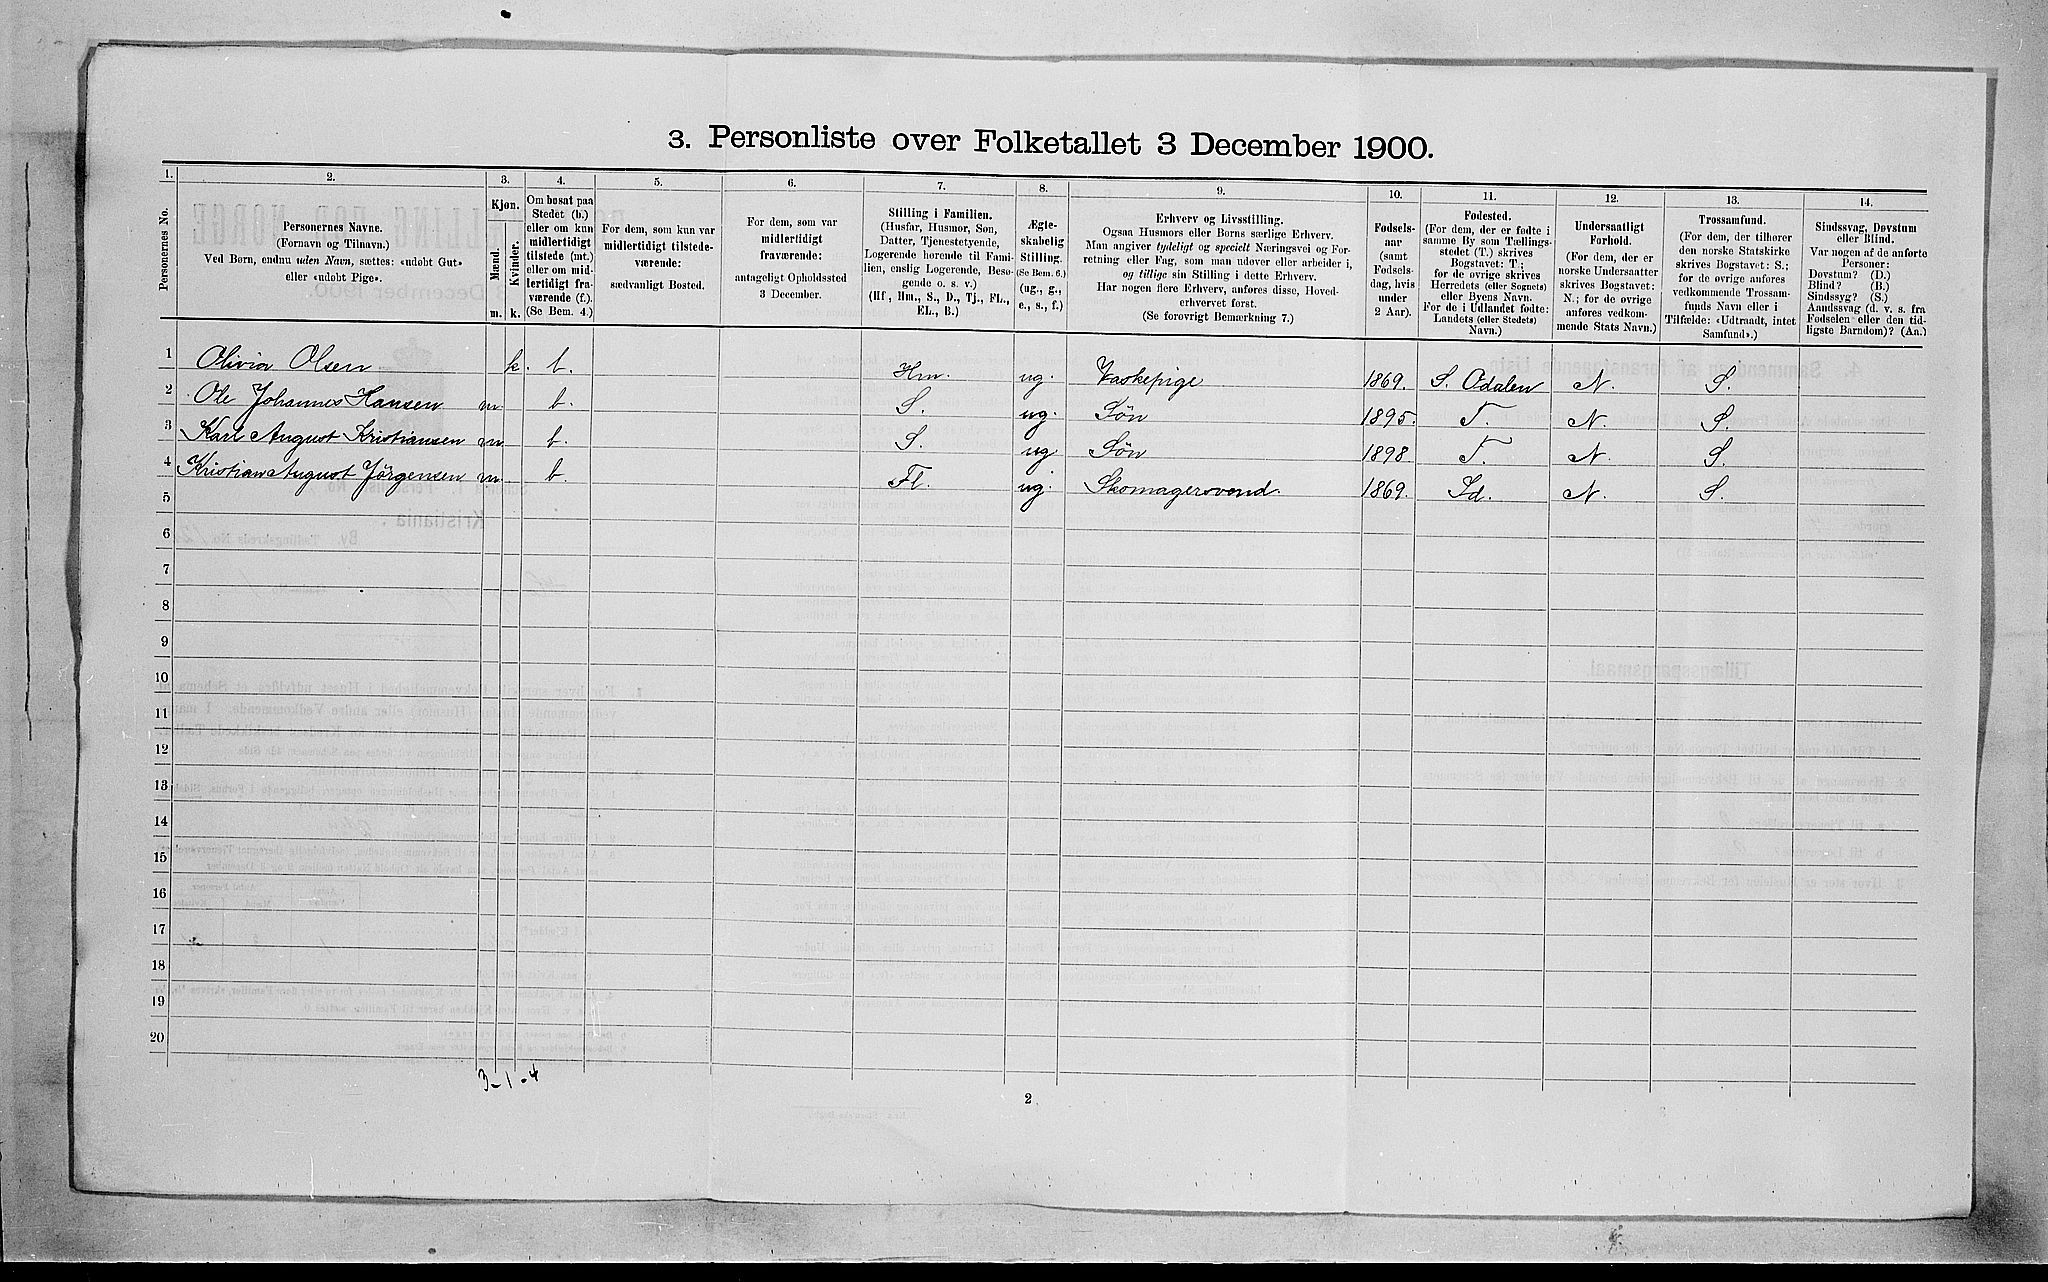 3. Personliste over Folketallet 3 December 1900.
1. 2. 3. 4. 5. 6. 7. 8. 9. 10. 11. 12. 13. 14.
Personernes No.
Personernes Navne.
(Fornavn og Tilnavn.)
Ved Børn, endnu uden Navn, sættes: «udøbt Gut»
eller «udøbt Pige».
Kjøn.
Mænd.
Kvinder.
m. k.
Om bosat paa
Stedet (b.)
eller om kun
midlertidigt
tilstede (mt.)
eller om mid-
lertidigt fra-
værende (f.).
(Se Bem. 4.)
For dem, som kun var
midlertidigt tilstede-
værende:
sædvanligt Bosted.
For dem, som var
midlertidigt
fraværende:
antageligt Opholdssted
3 December.
Stilling i Familien.
(Husfar, Husmor, Søn,
Datter, Tjenestetyende,
Logerende hørende til Fami-
lien, enslig Logerende, Besø-
gende o. s. v.)
(Hf, Hm., S., D., Tj., FL.,
EL., B.)
Ægte-
skabelig
Stilling.
(Se Bem. 6.)
(ug., g.,
e., s., f.)
Erhverv og Livsstilling.
Ogsaa Husmors eller Børns særlige Erhverv.
Man angiver tydeligt og specielt Næringsvei og For-
retning eller Fag, som man udøver eller arbeider i,
og tillige sin Stilling i dette Erhverv.
Har nogen flere Erhverv, anføres disse, Hoved-
erhvervet først.
(Se forøvrigt Bemærkning 7.)
Fødsels-
aar
(samt
Fødsels-
dag, hvis
under
2 Aar).
Fødested.
(For dem, der er fødte i
samme By som Tællings-
stedet (T.) skrives
Bogstavet: T.;
for de øvrige skrives
Herredets (eller Sognets)
eller Byens Navn.
For de i Udlandet fødte:
Landets (eller Stedets)
Navn.)
Undersaatligt
Forhold.
(For dem, der er
norske Undersaatter
skrives Bogstavet:
N.; for de øvrige
anføres vedkom-
mende Stats Navn.)
Trossamfund.
(For dem, der tilhører
den norske Statskirke
skrives Bogstavet: S.;
for de øvrige anføres
vedkommende Trossam-
funds Navn eller i
Tilfælde: «Udtraadt, intet
Samfund».)
Sindssvag, Døvstum
eller Blind.
Var nogen af de anførte
Personer:
Døvstum? (D.)
Blind? (B.)
Sindssyg? (S.)
Aandssvag (d. v. s. fra
Fødselen eller den tid-
ligste Barndom)? (Aa.)
1 Olivia Olsen k. b. Hm. ug. Vaskepige 1869. S. Odalen N. S.
2 Ole Johannes Hansen m b. S. ug. Søn 1895. T. N. S.
3 Karl August Kristiansen m b. S. ug Søn 1898. T. N. S.
4 Kristian August Jörgensen m b. Fl. ug. Skomagersvend. 1869. Id. N. S.
5
6
7
8
9
10
11
12
13
14
15
16
17
18
19
20
3-1-4
2